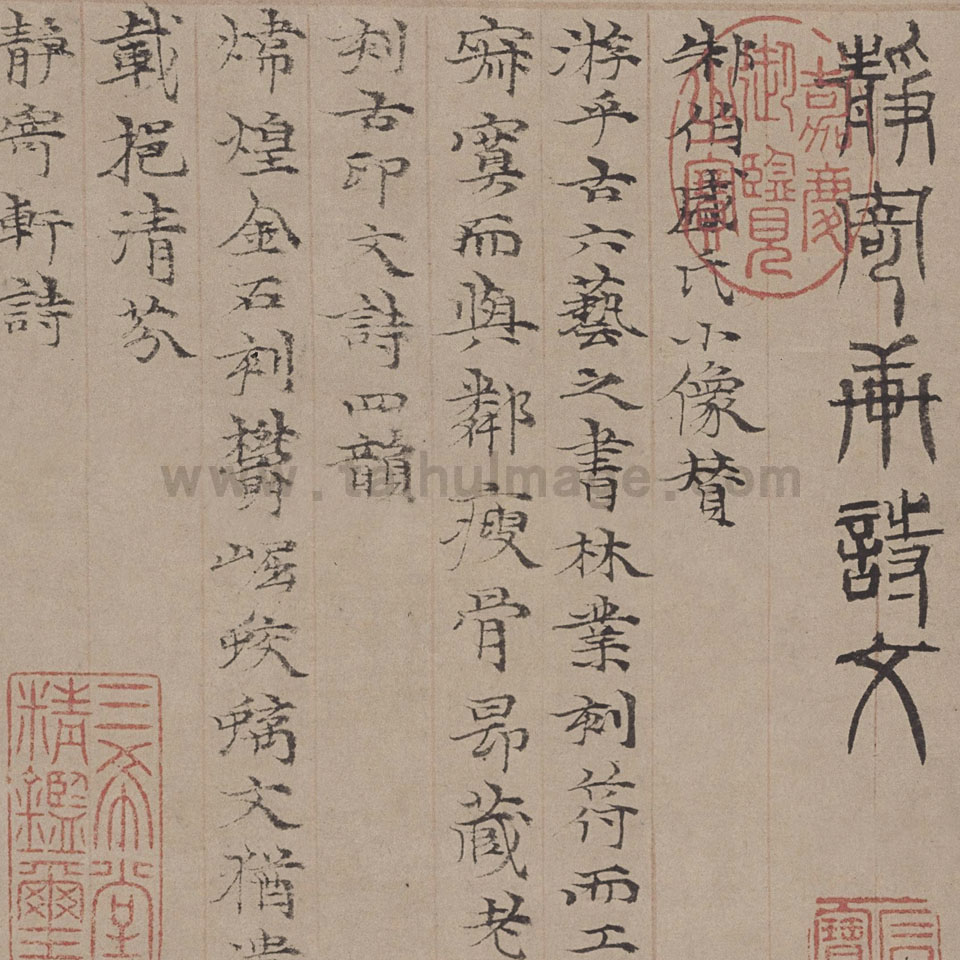 静寄軒詩文
朱伯盛氏小像賛
游乎古六藝之書林業刻符而工
寂寞而與鄰瘦骨昻藏老
刻古印文詩四韻
煒煌金石刻鬱崛蛟螭文猶
載挹清芬
静寄軒詩
嘉慶御覽之寶
三希堂精鑑璽
www.taihuImage.com